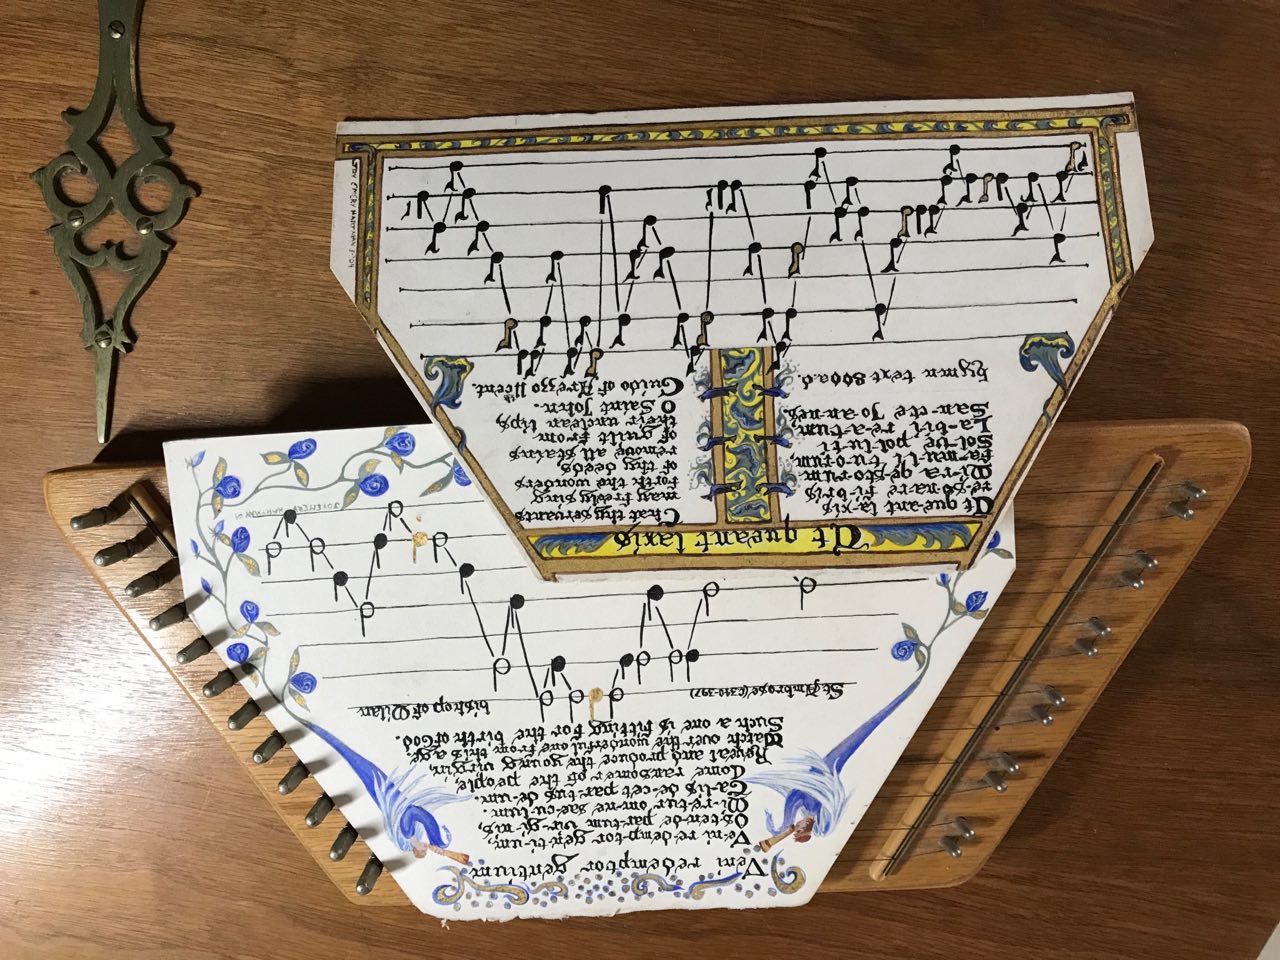 Ut queant laxis
Ut que-ant la-xis
re-so-na-re fi-bris
Mi-ra ge-sto-rum
fa-mu-li tu-o-rum,
Sol-ve pol-lu-ti
La-bi-i re-a-tum,
San-cte Jo-an-nes.
Hymn text 800 a.d.
That thy servants
may freely sing
forth the wonders
of thy deeds
remove all stains
of guilt from
their unclean lips,
O Saint John.
Guido of Arezzo 11cent.
JOY EMERY HARTMAN
Veni redemptor gentium
Ve-ni re-demp-tor gen-ti-um;
Os-ten-de par-tum vir-gi-nis,
Mi-re-tur om-ne sae-cu-lum.
Ta-lis de-cet par-tus de-um.
Come ransomer of the people,
Reveal and produce the young virgin,
Watch over the wonderful one from this age.
Such a one is fitting for the birth of God.
St. Ambrose (c340-397) bishop of Milan